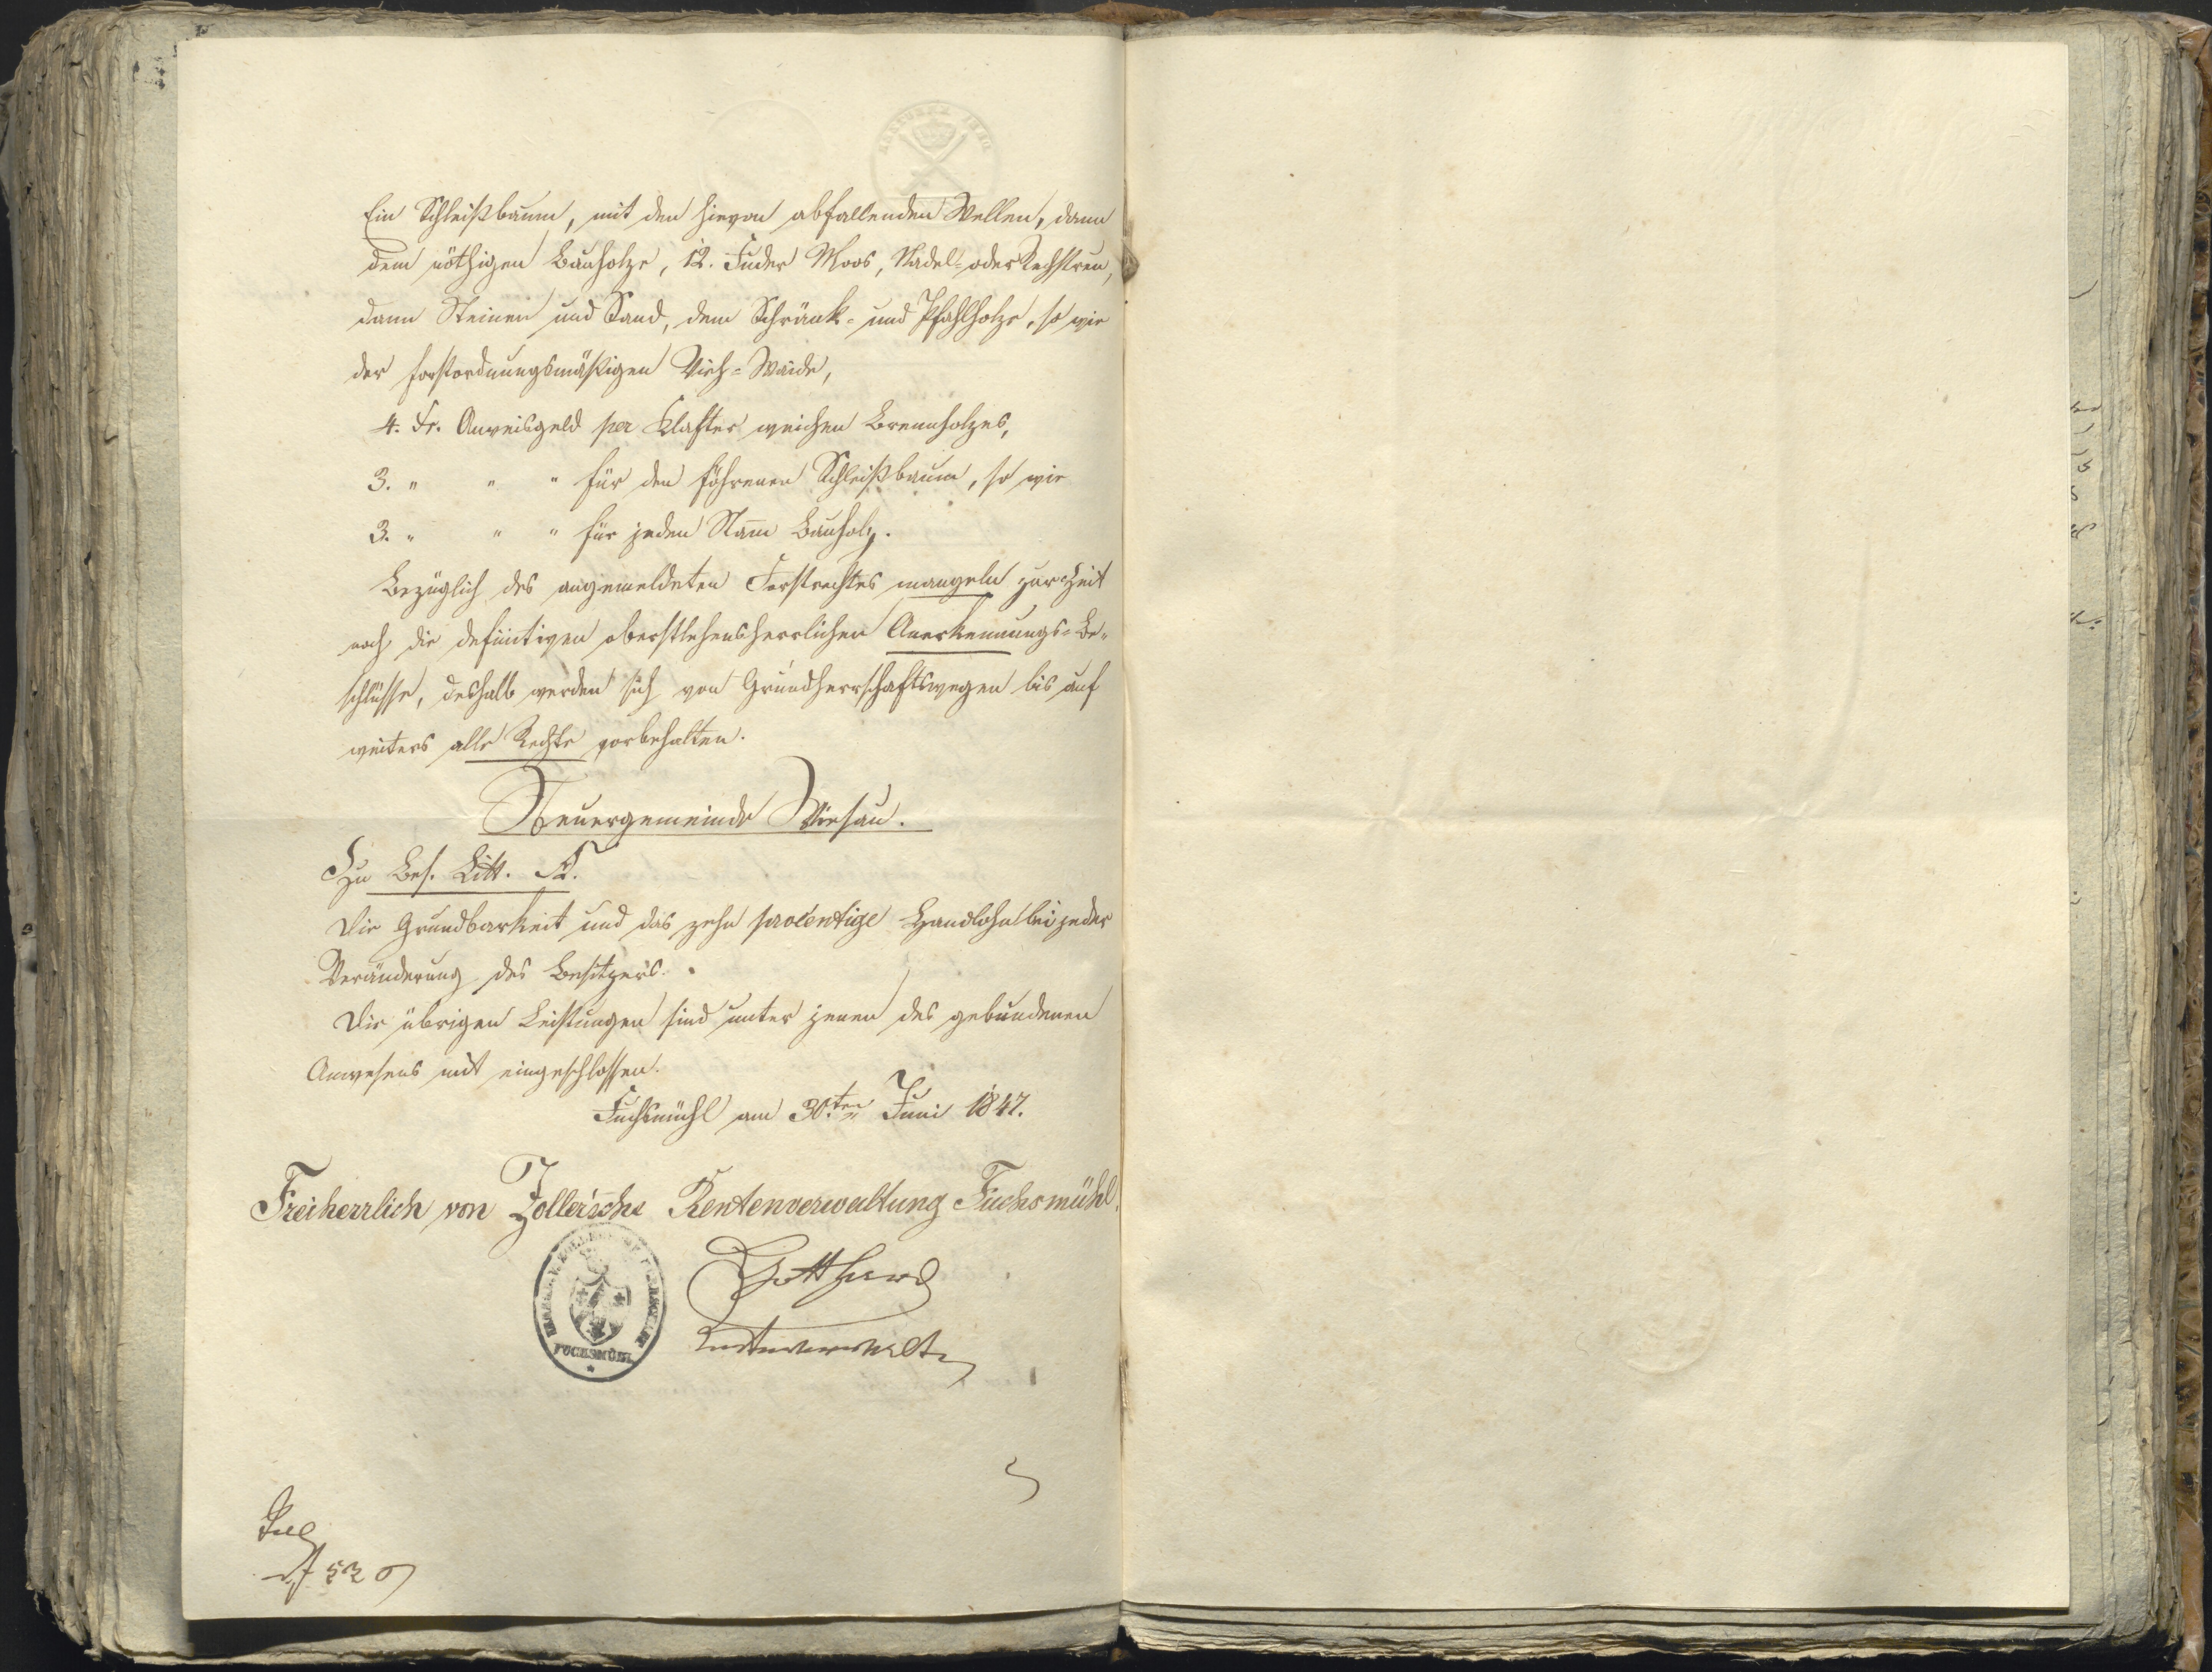 Ein Schleißbaum, mit den hievon abfallenden Wellen, dann
dem nöthigen Bauholze, 12. Fuder Moos, Nadel- oder Rechstreu,
dann Steinen und Sand, dem Schränk- und Pfahlholze, so wie
der forstordnungsmäßigen Vieh-Waide,
4. Fr. Anweisgeld per Klafter weichen Brennholzes,
3. " " " für den föhrenen Schleißbaum, so wie
3. " " " für jeden Stam̄ Bauholz.
Bezüglich des angemeldeten Forstrechtes mangeln zur Zeit
noch die definitiven oberstlehensherrlichen Anerkennungs-Be-
schlüsse, deshalb werden sich von Grundherrschaftswegen bis auf
weiters alle Rechte vorbehalten.
Steuergemeinde Wiesau.
Zu Bes. Litt. A.
Die Grundbarkeit und das zehn procentige Handlohn bei jeder
Veränderung des Besitzers.
Die übrigen Leistungen sind unter jenen des gebundenen
Anwesens mit eingeschlossen.
Fuchsmühl am 30.ten Juni 1847.
Freiherrlich von Zoller'sche Rentenverwaltung Fuchsmühl.
Gotthard
Rentenverwalter
FUCHSMÜHL
530